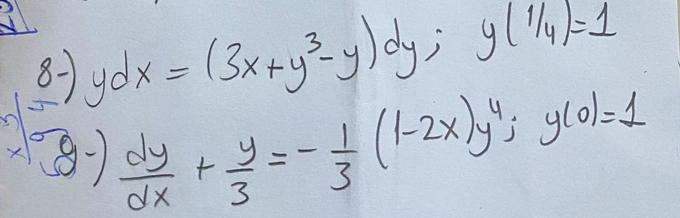 8-) ydx = (3x+y³-y)dy; y(1/4)=1
9-) dy/dx + y/3 = -1/3 (1-2x)y⁴; y(0)=1